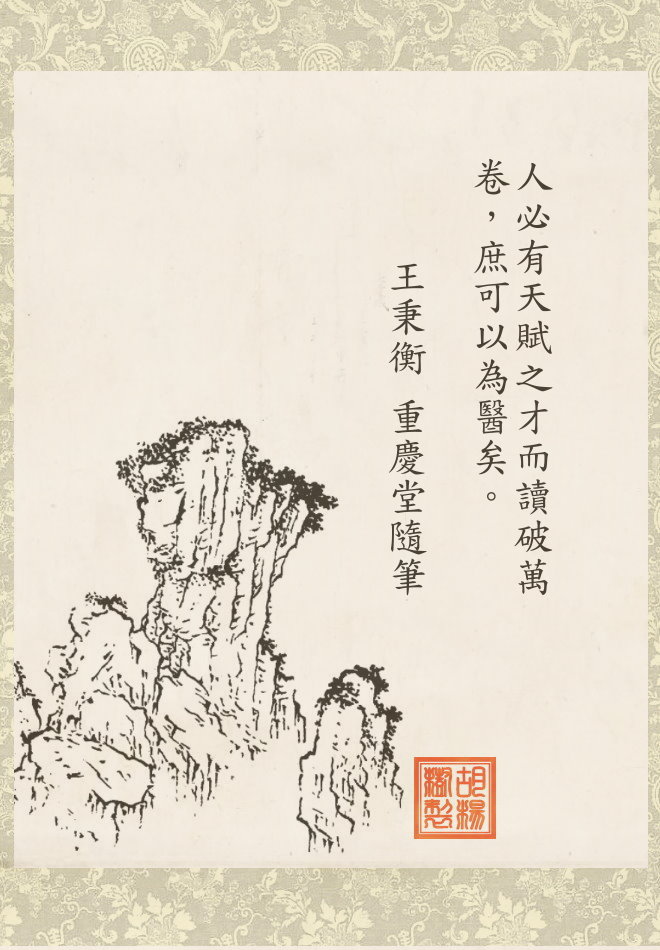 人必有天賦之才而讀破萬
卷，庶可以為醫矣。
王秉衡 重慶堂隨筆
胡楊